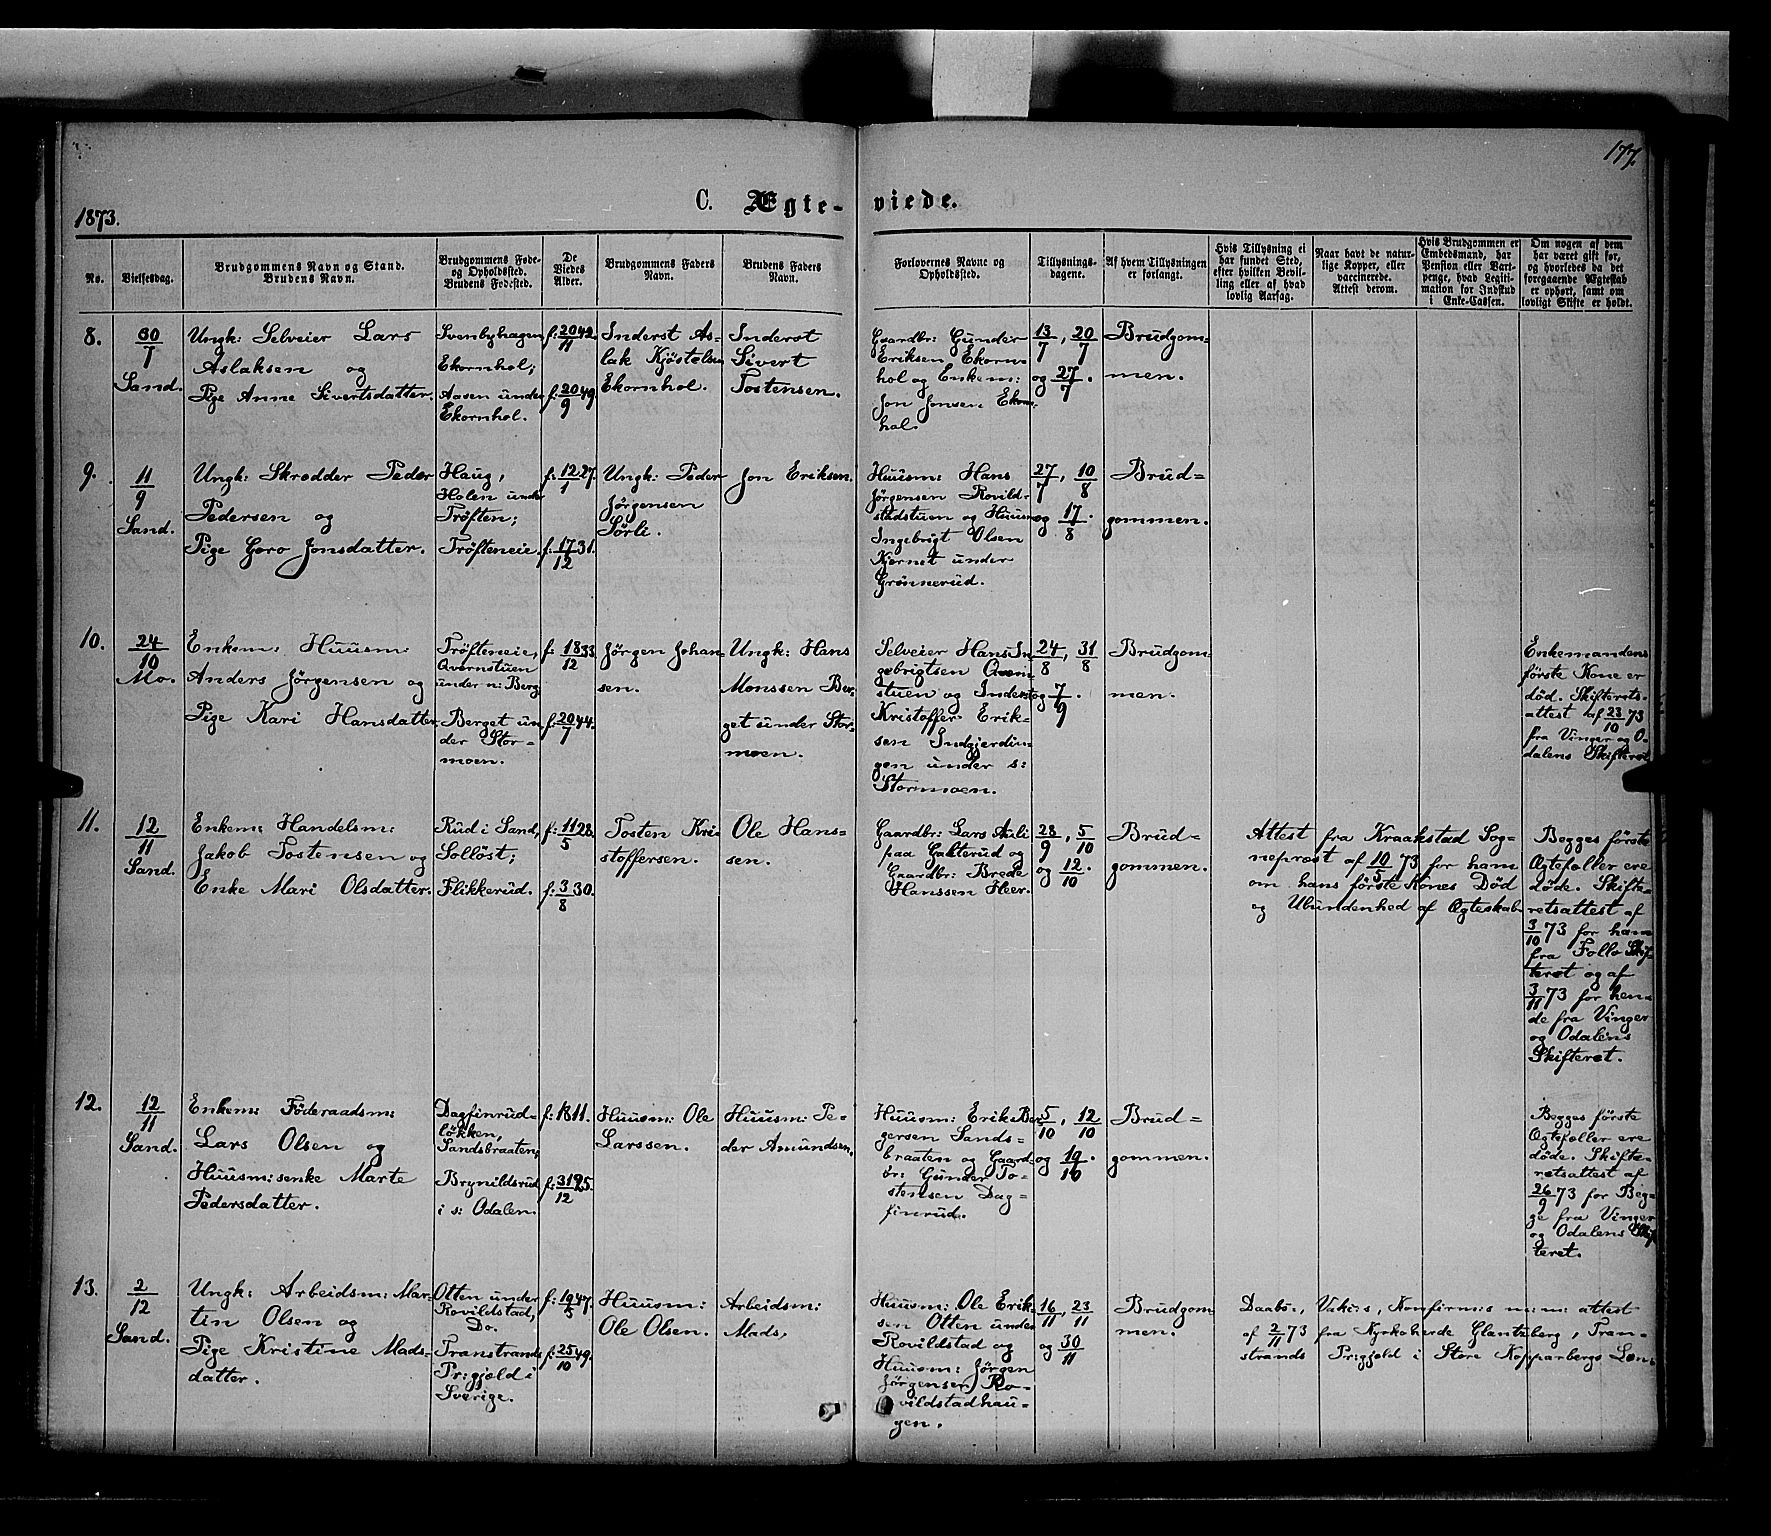 177.
C. Ægte- viede.
1873.
No.
Vielsesdag.
Brudgommens Navn og Stand.
Brudens Navn.
Brudgommens Føde-
og Opholdssted.
Brudens Fødested.
De
Viedes
Alder.
Brudgommens Faders
Navn.
Brudens Faders
Navn.
Forlovernes Navne og
Opholdssted.
Tillysnings-
dagene.
Af hvem Tillysningen
er forlangt.
Hvis Tillysning ei
har fundet Sted,
efter hvilken Bevil-
ling eller af hvad
lovlig Aarsag.
Naar havt de natur-
lige Kopper, eller
vaccinerede.
Attest derom.
Hvis Brudgommen er
Embedsmand, har
Pension eller Vart-
penge, hvad Legiti-
mation for Indskud
i Enke-Cassen.
Om nogen af dem
har været gift før,
og hvorledes da det
foregaaende Ægteskab
er ophørt, samt om
lovligt Skifte er holdt.
8.
30/7
Sand.
Ungk: Selveier Lars
Aslaksen og
Pige Anne Sivertsdatter.
Svenbyhagen
Ekornhol;
Aasen under
Ekornhol.
f: 20/11 42.
f: 20/9 49.
Inderst As-
lak Kjøstelsen
Ekornhol.
Inderst
Sivert
Tostensen.
Gaardbr: Gunder
Eriksen Ekorn-
hol og Enkem:
Jon Jonsen Ekorn-
hol.
13/7, 20/7
og 27/7.
Brudgom-
men.
9.
11/9
Sand.
Ungk: Skrædder Peder
Pedersen og
Pige Goro Jonsdatter.
Haug,
Holen under
Trøften;
Trøfteneie.
f: 12/1 27.
f: 17/12 31.
Ungk: Peder
Jørgensen
Sørli.
Jon Eriksen.
Huusm: Hans
Jørgensen Rovild-
stadstuen og Huusm:
Ingebrigt Olsen
Kjernet under
Grønnerud.
27/7, 10/8
og 17/8.
Brud-
gommen.
10.
24/10
Mo.
Enkem: Huusm:
Anders Jørgensen og
Pige Kari Hansdatter
Trøfteneie,
Qvernstuen
under n: Berg;
Berget un-
der Stor-
moen.
f: 18/12 33.
f: 20/7 44.
Jørgen Johan-
sen.
Ungk: Hans
Monssen Ber-
get under Stor-
moen.
Selveier Hans In-
gebrigtsen Qvern-
stuen og Inderst
Kristoffer Erik-
sen Indgjerdin-
gen under s:
Stormoen.
24/8, 31/8
og 7/9.
Brudgom-
men.
Enkemandens
første Kone er
død. Skifterets-
attest af 23/10 73
fra Vinger og O-
dalens Skifteret
11.
12/11
Sand.
Enkem: Handelsm:
Jakob Tostensen og
Enke Mari Olsdatter.
Rud i Sand,
Solløst;
Flikkerud.
f: 11/5 28.
f: 3/8 30.
Tosten Kri-
stoffersen.
Ole Hans-
sen.
Gaardbr: Lars Auli
paa Galterud og
Gaardbr: Brede
Hanssen Heer.
28/9, 5/10
og 12/10.
Brud-
gommen.
Attest fra Kraakstad Sog-
nepræst af 10/5 73 for ham
om hans første Kones Død
og Ubundenhed af Ægteskab.
Begges første
Ægtefæller ere
døde. Skifte-
retsattest af
3/10 73 for ham
fra Follo Skif-
teret og af
3/11 73 for hen-
de fra Vinger
og Odalens
Skifteret.
12.
12/11
Sand.
Enkem: Föderaadsm:
Lars Olsen og
Huusm:senke Marte
Pedersdatter.
Dagfinrud-
løkken,
Sandsbraaten;
Brynildsrud
i s: Odalen.
f: 1811.
f: 31/12 25.
Huusm: Ole
Larssen.
Huusm: Pe-
der Amundsen.
Huusm: Erik Ber-
gersen Sands-
braaten og Gaard-
br: Gunder To-
stensen Dag-
finrud.
5/10, 12/10
og 19/10.
Brud-
gommen.
Begges første
Ægtefæller ere
døde. Skifte-
retsattest af
26/9 73 for Beg-
ge fra Vinger
og Odalens Skif-
teret.
13.
2/12
Sand.
Ungk: Arbeidsm: Mar-
tin Olsen og
Pige Kristine Mads-
datter.
Otten under
Rovildstad,
Do.
Transtrands
Pr:gjæld i
Sverige.
f: 19/5 47.
f: 25/10 49.
Huusm:
Ole Olsen.
Arbeidsm:
Mads,
Huusm: Ole Erik-
sen Otten under
Rovildstad og
Huusm: Jørgen
Jørgensen Ro-
vildstadhau-
gen.
16/11, 23/11
og 30/11
Brudgom
men.
Daabs:, Vakis:, Konfirm:s m:m: attest
af 2/11 73 fra Kyrkoherde Glantzberg, Tran-
strands Pr:gjæld i Store Kopparbergs Læn.